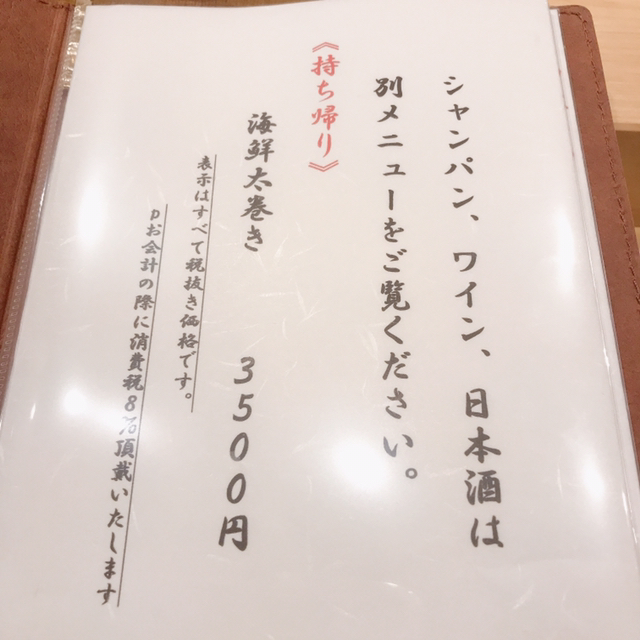 シャンパン、ワイン、日本酒は
別メニューをご覧ください。
《持ち帰り》
海鮮太巻き 3500円
表示はすべて税抜き価格です。
お会計の際に消費税8%頂戴いたします